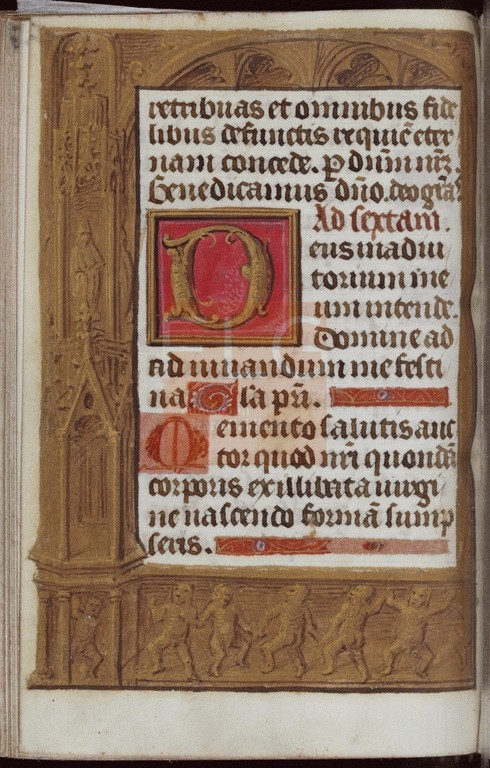 retribuas et omnibus fide
libus defunctis requiē eter
nam concede. p dūm nr̄z.
Benedicamus dn̄o. deo gr̄a
Ad sextam.
Deus in adiu
torium me
um intende.
Domine ad
ad iuuandum me festi
na Gl̄a pr̄i.
Memento salutis auc
tor quod nr̄i quondā
corporis ex illibata uirgi
ne nascendo formā sump
seris.